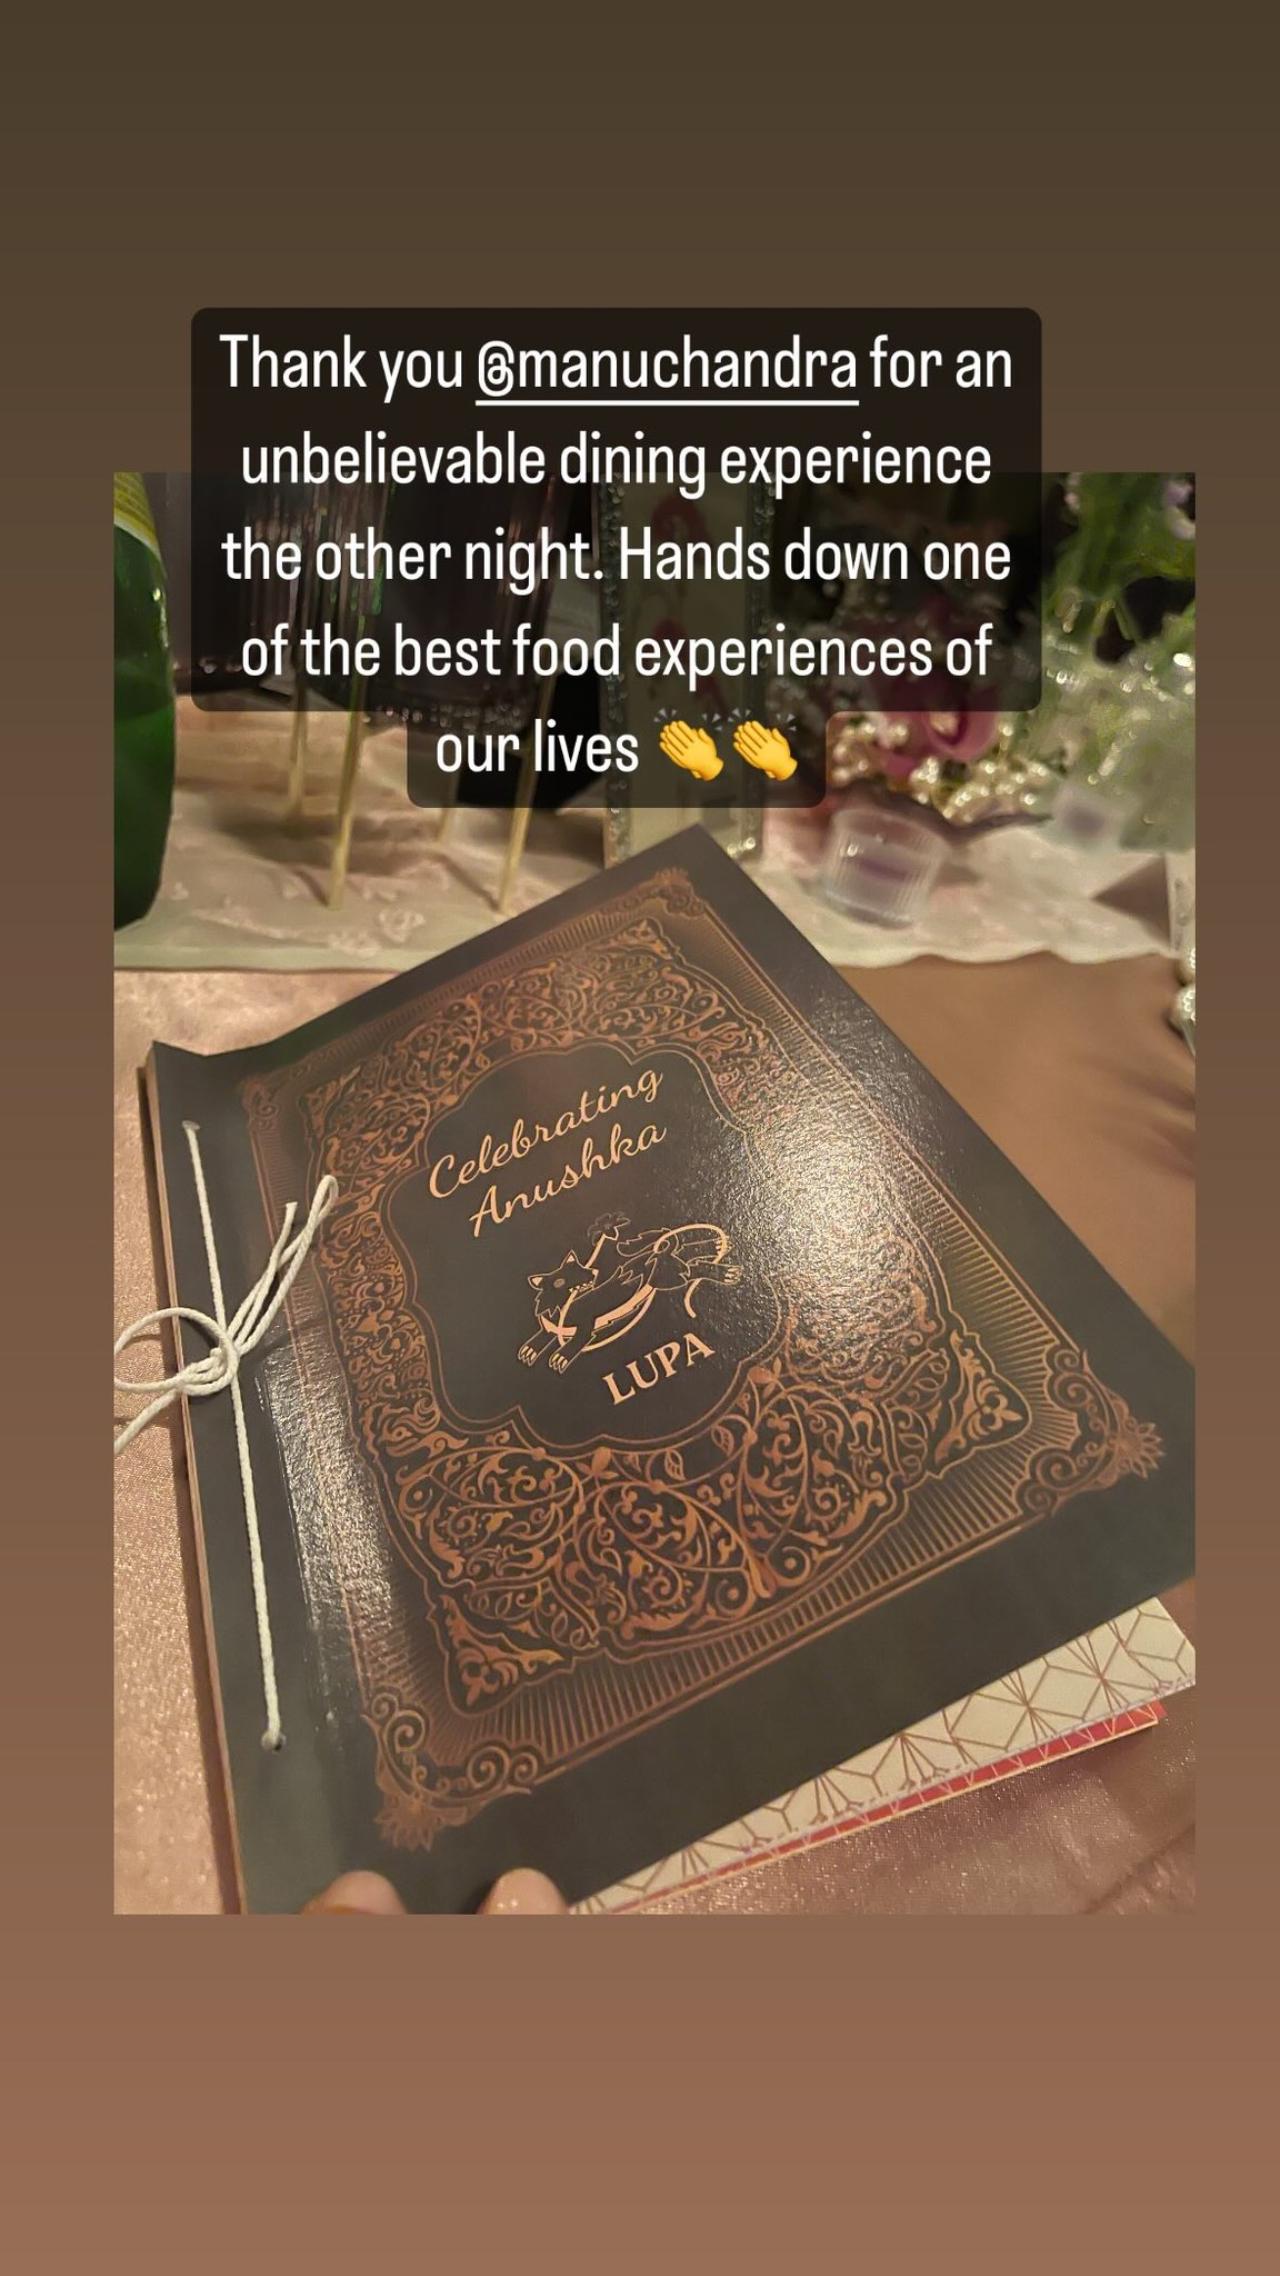 Thank you @manuchandra for an
unbelievable dining experience
the other night. Hands down one
of the best food experiences of
our lives 👏👏
Celebrating
Anushka
LUPA